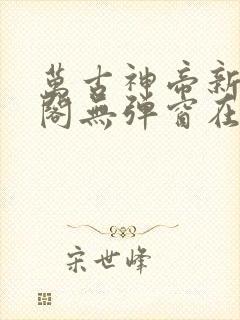 萬古神帝新
閣無彈窗在
宋世峰